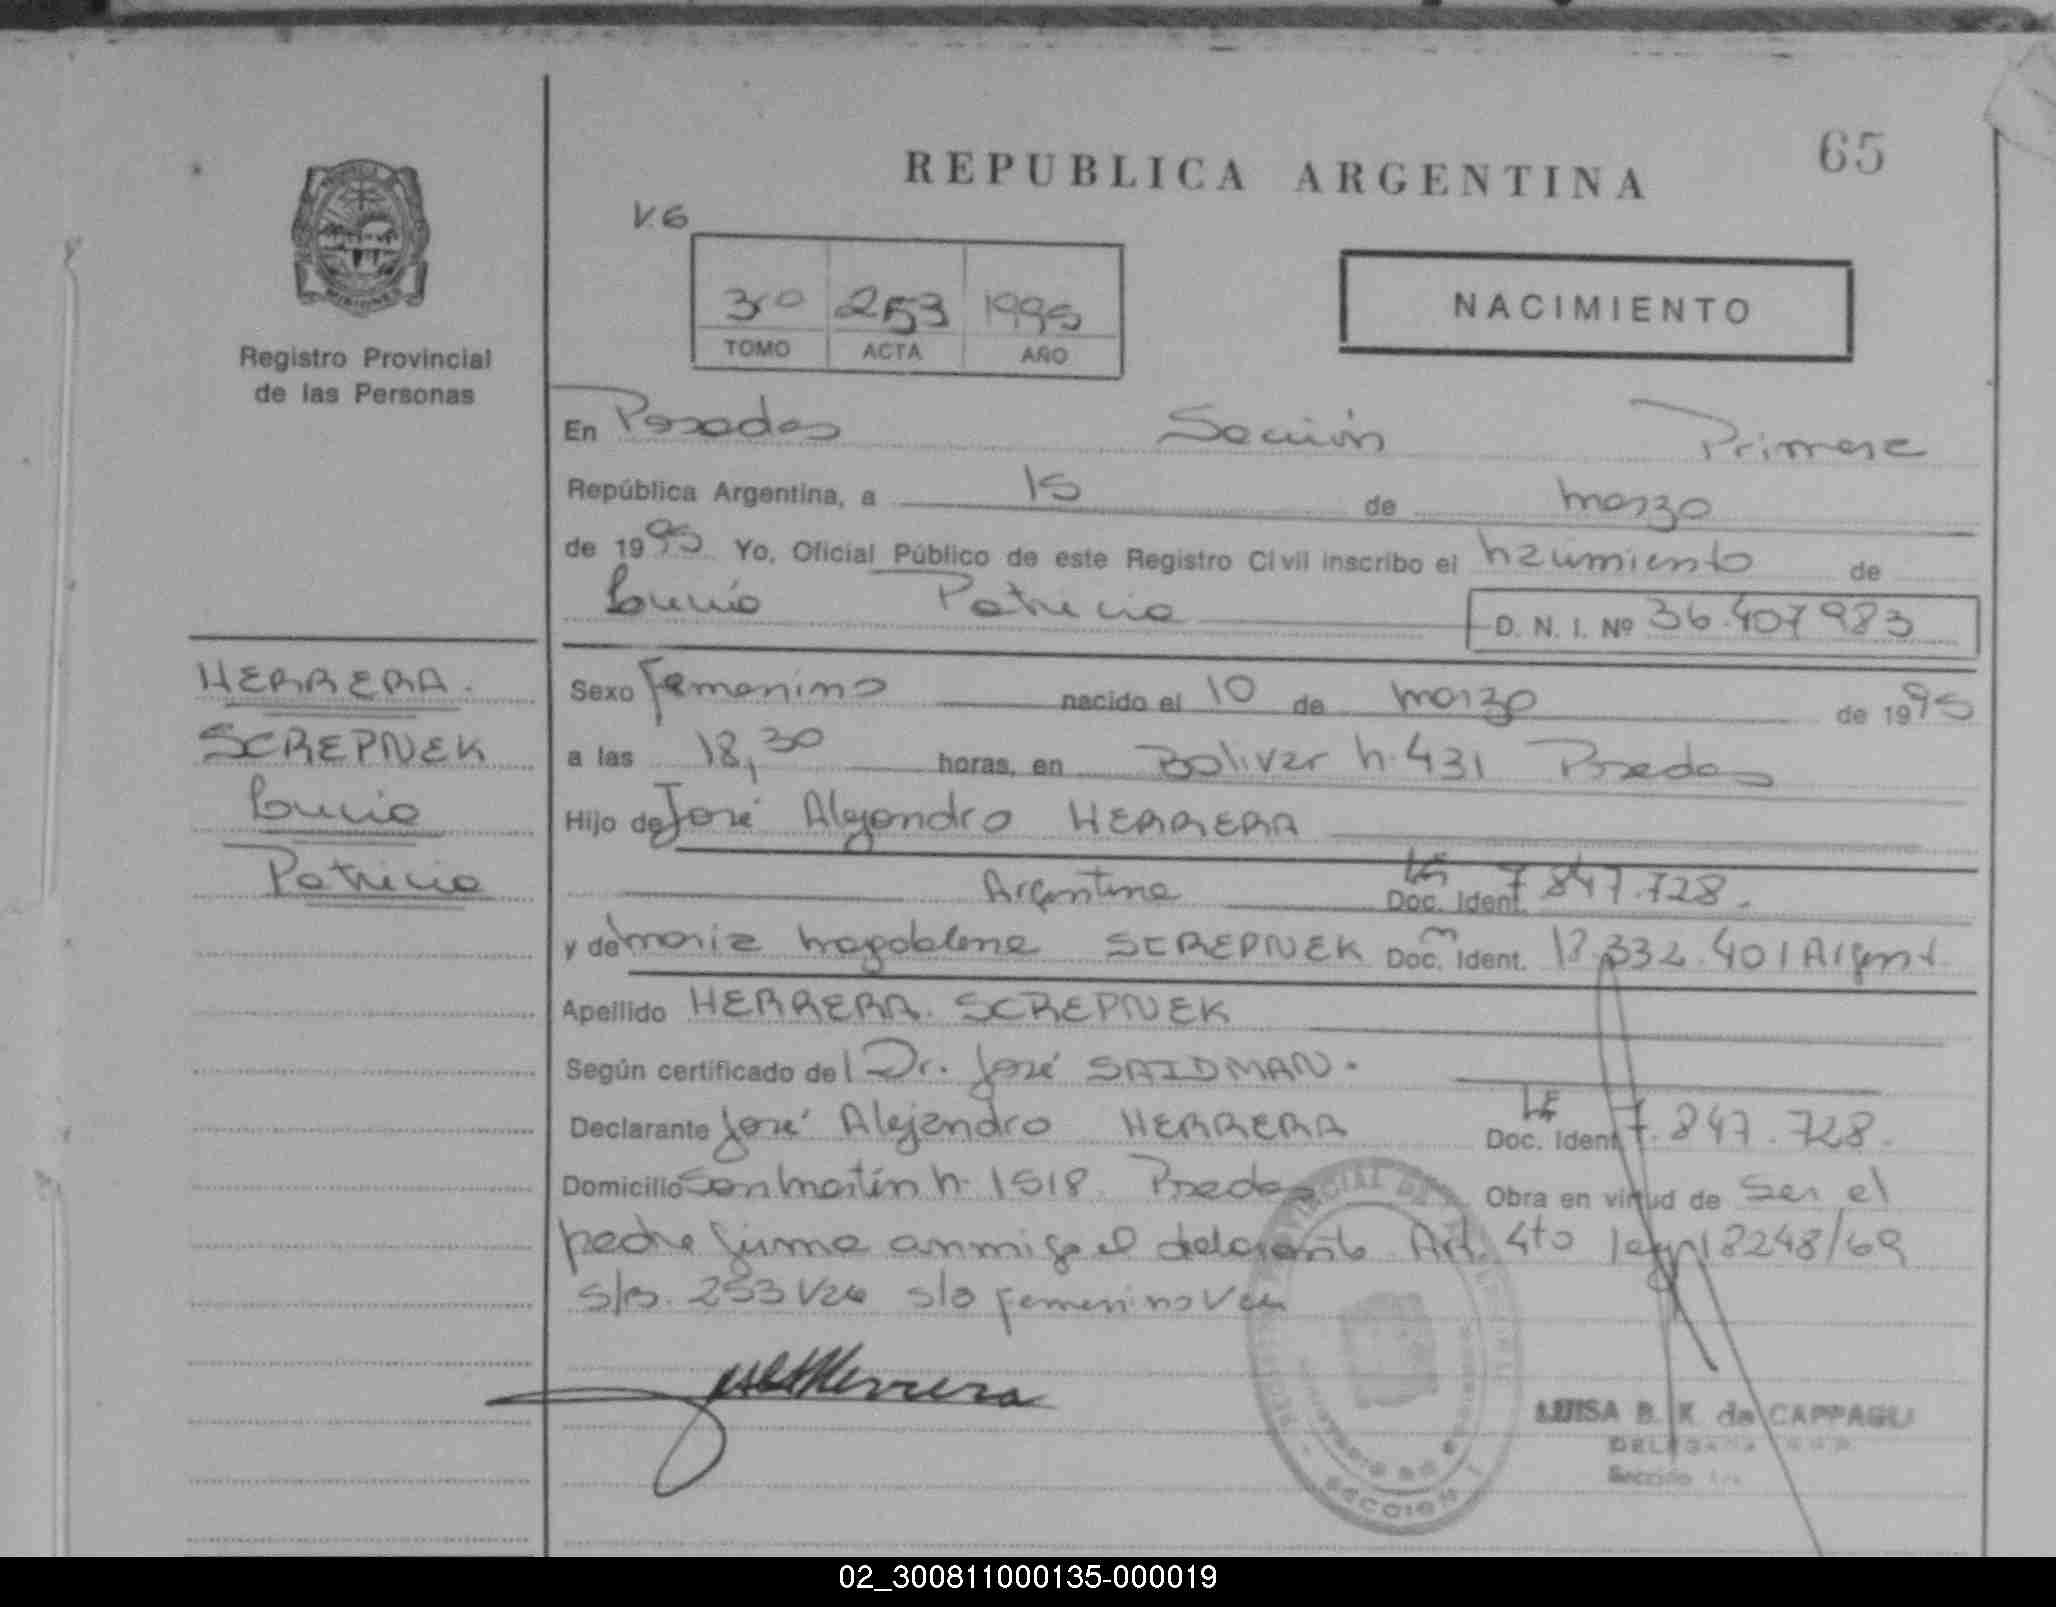 65
REPUBLICA ARGENTINA
V.6
3ro 253 1995
TOMO ACTA AÑO
NACIMIENTO
Registro Provincial
de las Personas
En Posadas Sección Primera
República Argentina, a 15 de marzo
de 1995 Yo, Oficial Público de este Registro Civil inscribo el nacimiento de
Lucía Patricia D. N. I. Nº 36.407983
HERRERA.
SCREPNEK
Lucía
Patricia
Sexo femenino nacido el 10 de marzo de 1995
a las 18,30 horas, en Bolivar n. 431 Posadas
Hijo de José Alejandro HERRERA
Argentina Doc. Ident. LE 7.847.728.
y de maria magdalena SCREPNEK Doc. Ident. 332.401 Argent.
Apellido HERRERA. SCREPNEK
Según certificado del Dr. José SAIDMAN.
Declarante José Alejandro HERRERA Doc. Ident. LE 7.847.728.
Domicilio San martín n. 1518 Posadas Obra en virtud de ser el
padre firma conmigo el declarante Art. 4to ley 18248/69
s/b. 253 Vale s/o femenino Vale
LUISA B. K. de CAPPAGLI
Sección 1ra
SECCION 1
02_300811000135-000019